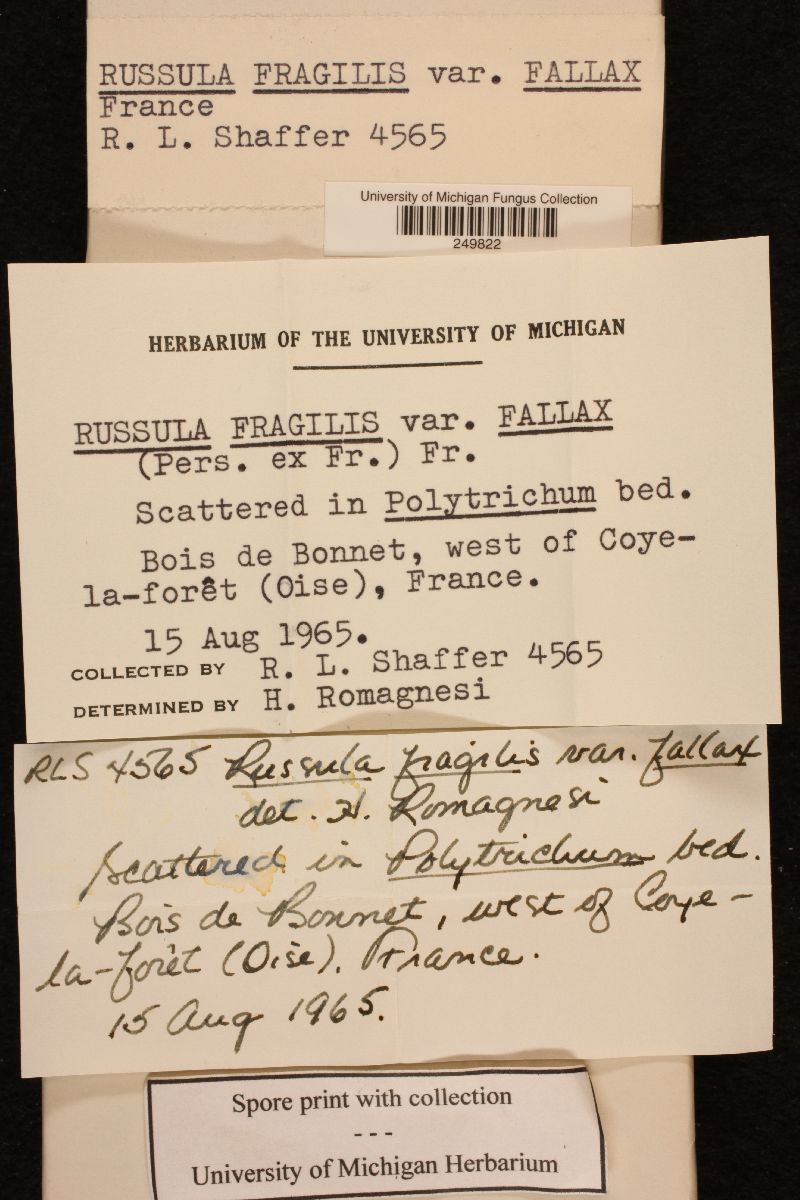 RUSSULA FRAGILIS var. FALLAX
France
R. L. Shaffer 4565
University of Michigan Fungus Collection
249822
HERBARIUM OF THE UNIVERSITY OF MICHIGAN
RUSSULA FRAGILIS var. FALLAX
(Pers. ex Fr.) Fr.
Scattered in Polytrichum bed.
Bois de Bonnet, west of Coye-
la-forêt (Oise), France.
15 Aug 1965.
COLLECTED BY R. L. Shaffer 4565
DETERMINED BY H. Romagnesi
RLS 4565 Russula fragilis var. fallax
det. H. Romagnesi
Scattered in Polytrichum bed.
Bois de Bonnet, west of Coye-
la-forêt (Oise), France.
15 Aug 1965.
Spore print with collection
- - -
University of Michigan Herbarium